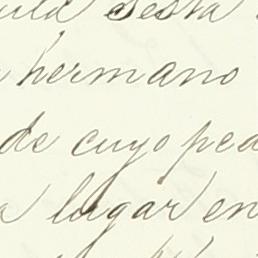 sesta
hermano
de cuyo ped
a lugar en